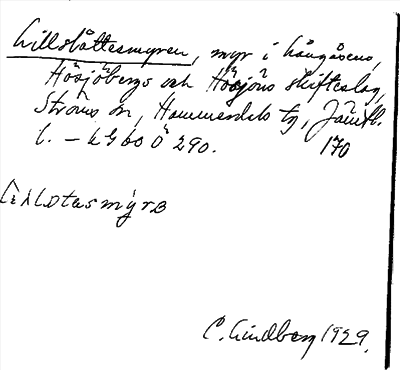 Lillslåttesmyren, myr i Långåsens,
Hösjöbergs och Hösjöns skifteslag,
Ströms sn, Hammerdals tg, Jämtl.
l. – kG 60 Ö 290. 170
C. Lindberg 1929.